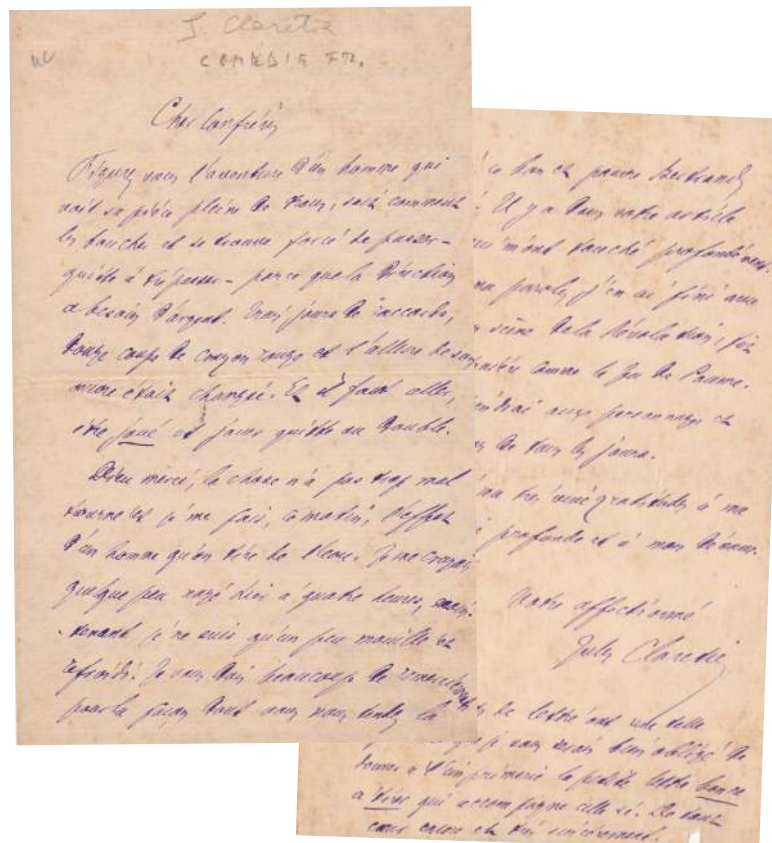 J. Claretie
COMÉDIE FR.
Cher Confrère,
Figurez vous l'aventure d'un homme qui
voit sa pièce pleine de trous, sait comment
les boucher et se trouve forcé de passer –
quitte à trépasser – parce que la Direction
a besoin d'argent. Trois jours de raccords,
douze coups de crayon rouge et l'allure de son
œuvre était changée. Et il faut aller,
être joué et jouer quitte ou double.
Dieu merci, la chose n'a pas trop mal
tourné et je me fais, ce matin, l'effet
d'un homme qu'on tire de l'eau. Je me croyais
quelque peu noyé hier à quatre heures, main-
tenant je ne suis qu'un peu mouillé et
refroidi. Je vous dois beaucoup de
pour la façon dont vous
ce bon et pauvre Bertrand
Il y a dans votre article
m'ont touché profondément.
ma parole, j'en ai fini avec
scène de la Révolution, fût
comme le Jeu de Paume.
aux personnages et
de tous les jours.
ma très gratitude, à ma
profonde et à mon
Votre affectionné
Jules Claretie
de lettre ont une telle
que je vous serais bien obligé de
donner à l'imprimerie la petite lettre bonne
à tirer qui accompagne celle-ci. De tout
cœur encore et très sincèrement.